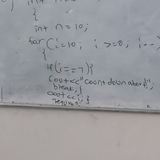 {
int n = 10;
for (i=10; i>=0; i--
{
if(i==7){
cout<<"countdown abort";
break;}
cout<<i;
}